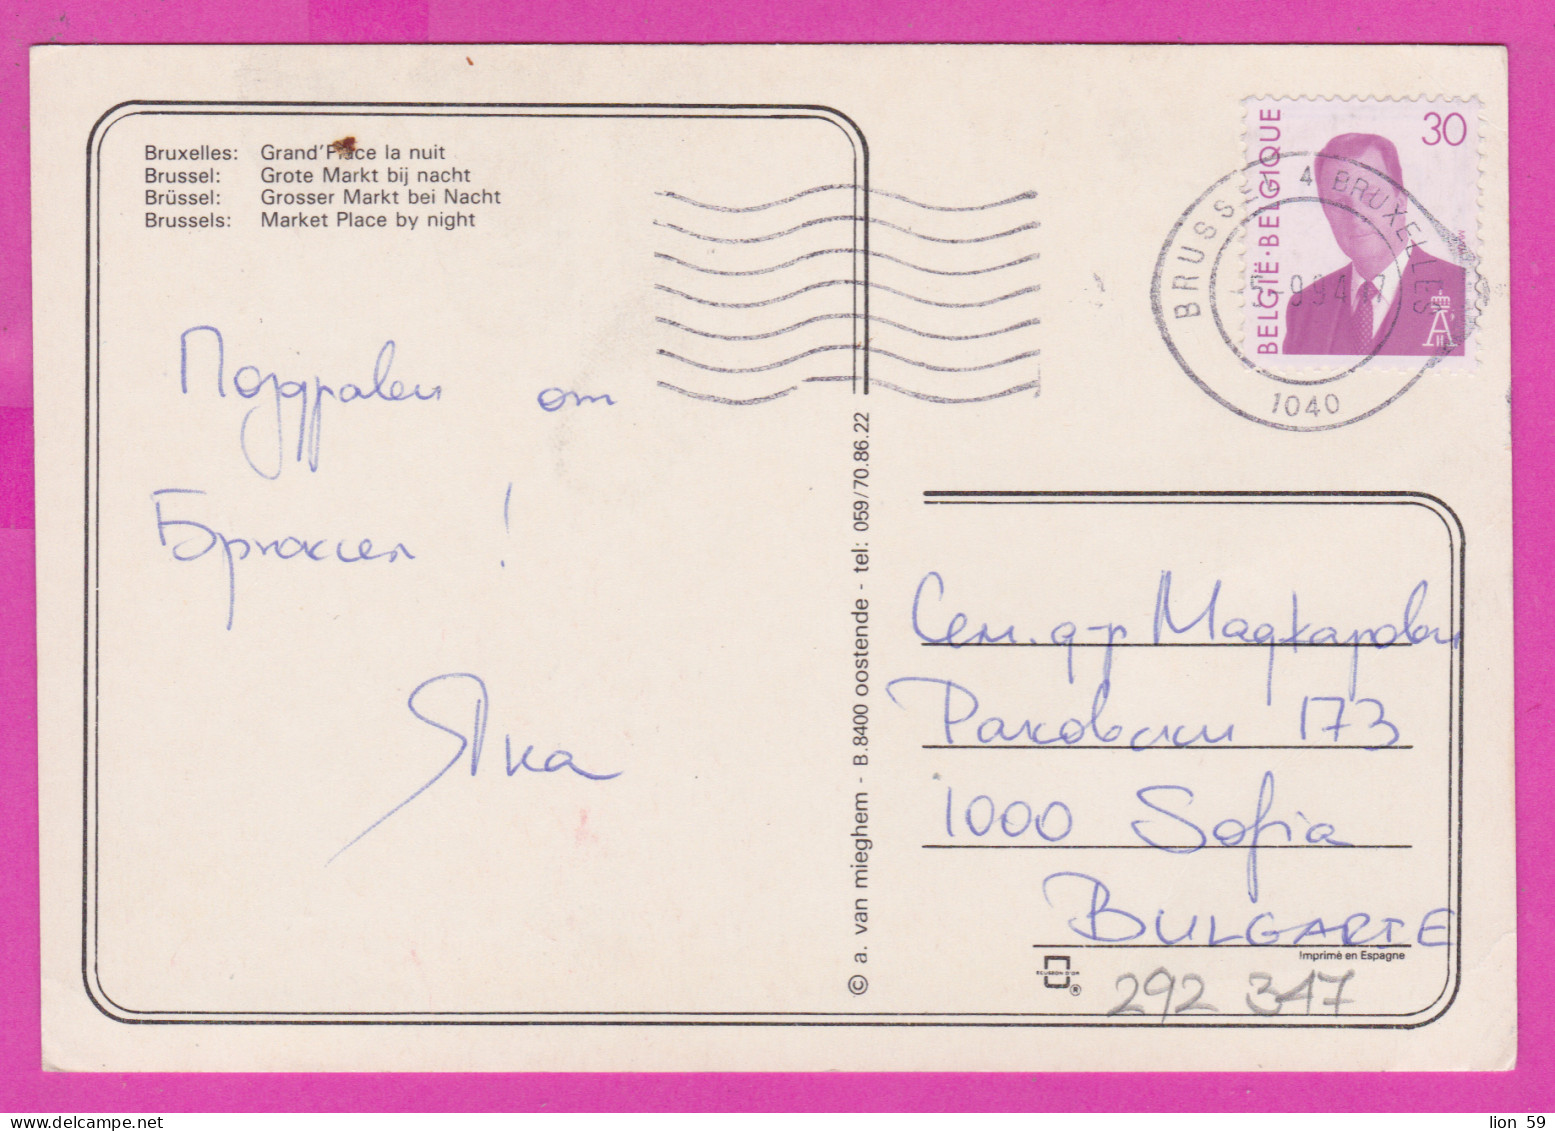 Bruxelles: Grand'Place la nuit
Brussel: Grote Markt bij nacht
Brüssel: Grosser Markt bei Nacht
Brussels: Market Place by night
BELGIË·BELGIQUE
30
BRUSSEL 4 BRUXELLES
1040
Поздрави от
Брюксел !
Яка
© a. van mieghem - B.8400 oostende - tel: 059/70.86.22
Сем. д-р Маджарови
Раковски 173
1000 Sofia
BULGARIE
Imprimé en Espagne
ECUSSON D'OR
®
292 347
lion 59